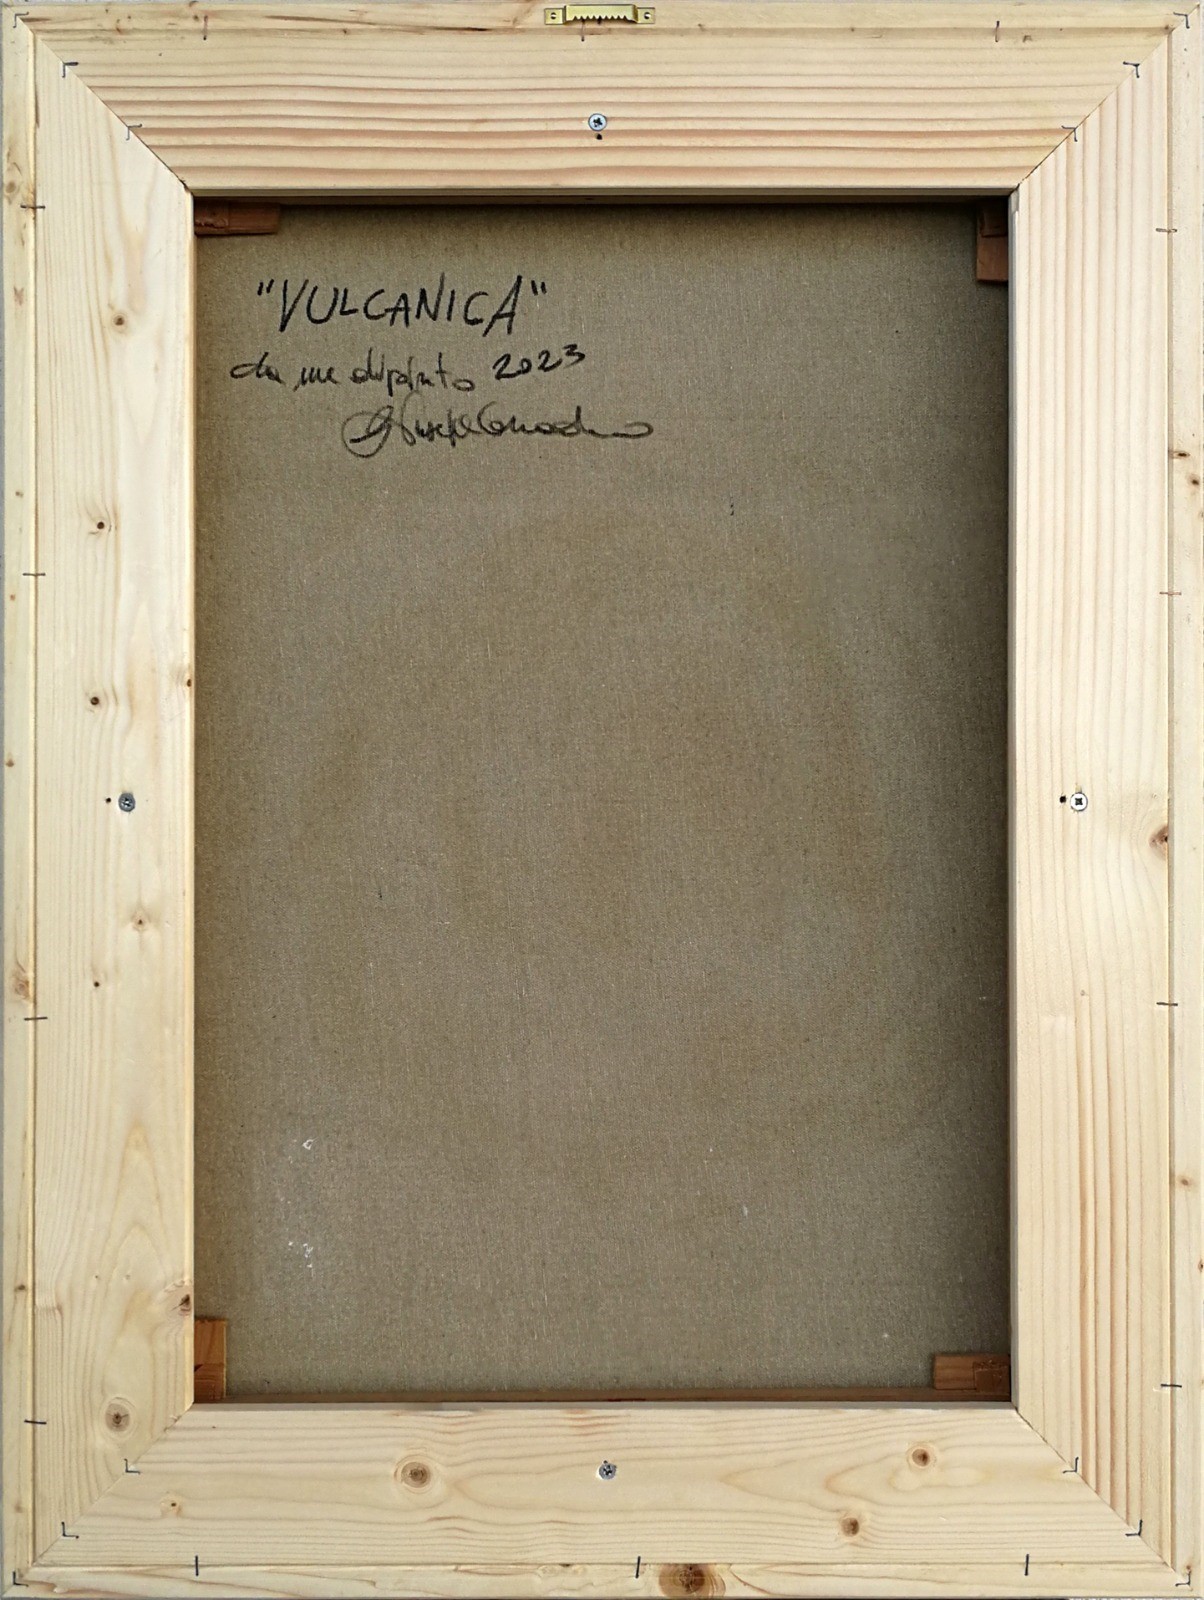 "VULCANICA"
da me dipinto 2023
Giuseppe